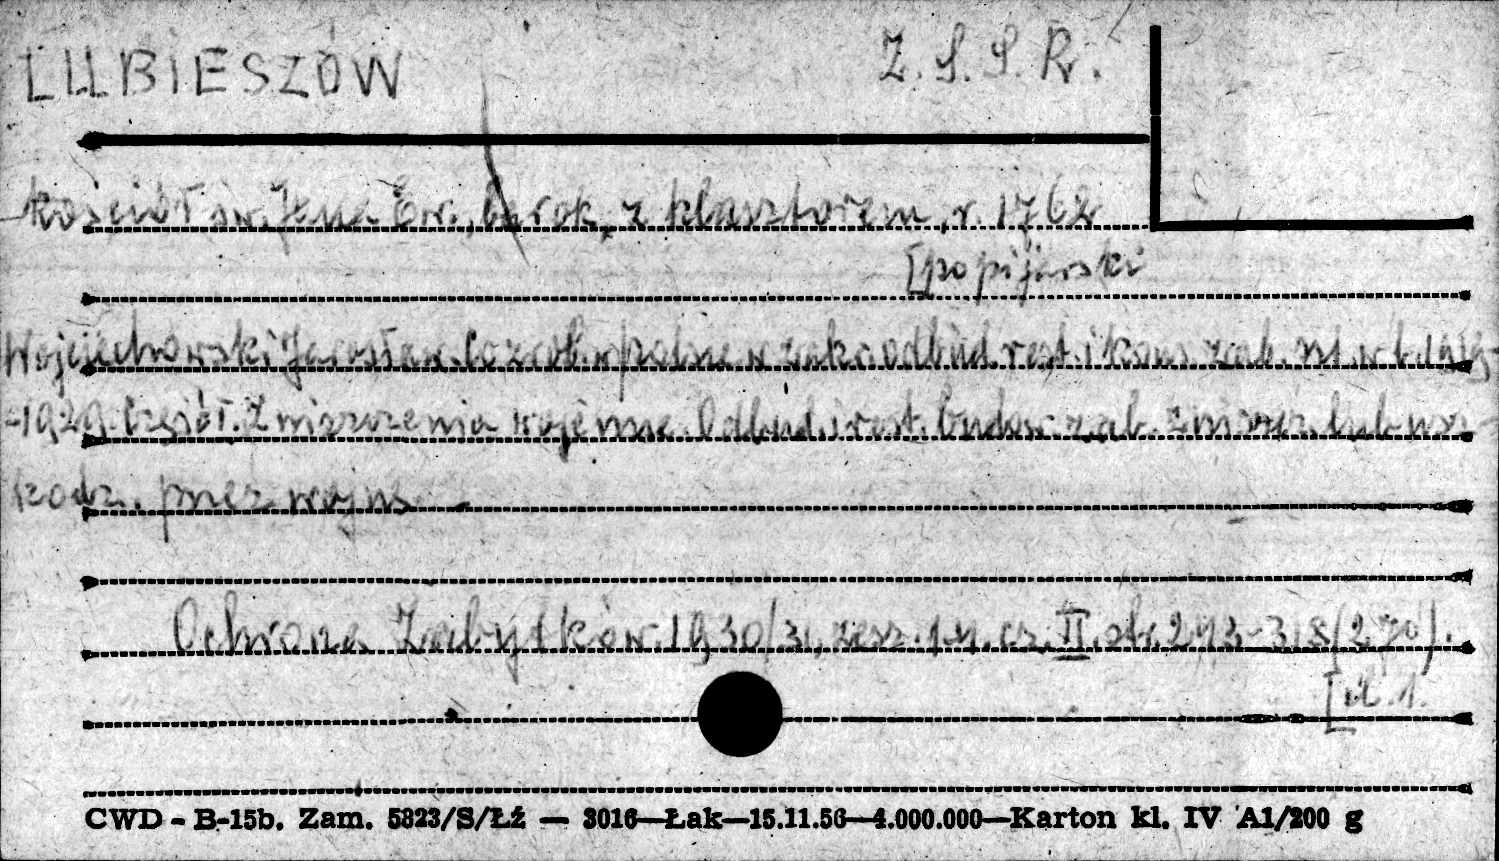 LUBIESZÓW Z.S.S.R.
kościół św. Jana Ew., barok, z klasztorem, r. 1762
[popijarski
Wojciechowski Jarosław. Co zrob. w Polsce w zakr. odbud. rest. i kons. zab. szt. w l. 1919-
-1929. Część I. Zniszczenia wojenne. Odbud. i rest. budow. zab. zniszcz. lub usz-
kodz. przez wojnę.
Ochrona Zabytków. 1930/31, zesz. 1-4. cz. II. str. 243-318 (270).
[il. 1.
CWD - B-15b. Zam. 5823/S/Łź — 3016—Łak—15.11.56—4.000.000—Karton kl. IV A1/200 g